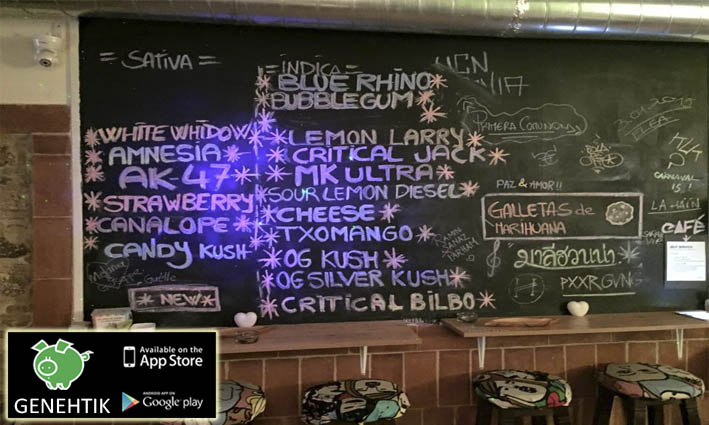 = SATIVA =
WHITE WHIDOW
AMNESIA
AK-47
STRAWBERRY
CANALOPE
CANDY KUSH
NEW
= INDICA =
BLUE RHINO
BUBBLEGUM
LEMON LARRY
CRITICAL JACK
MK ULTRA
SOUR LEMON DIESEL
CHEESE
TXOMANGO
OG KUSH
OG SILVER KUSH
CRITICAL BILBO
PRIMERA COMUNION
IBIZA
PAZ & AMOR!!
GALLETAS de
MARIHUANA
PXXRGVNG
CARNAVAL
15!
LA HAIN
CAFÉ
RAMIN
SANAZ
PARHAM
GENEHTIK
Available on the
App Store
ANDROID APP ON
Google play